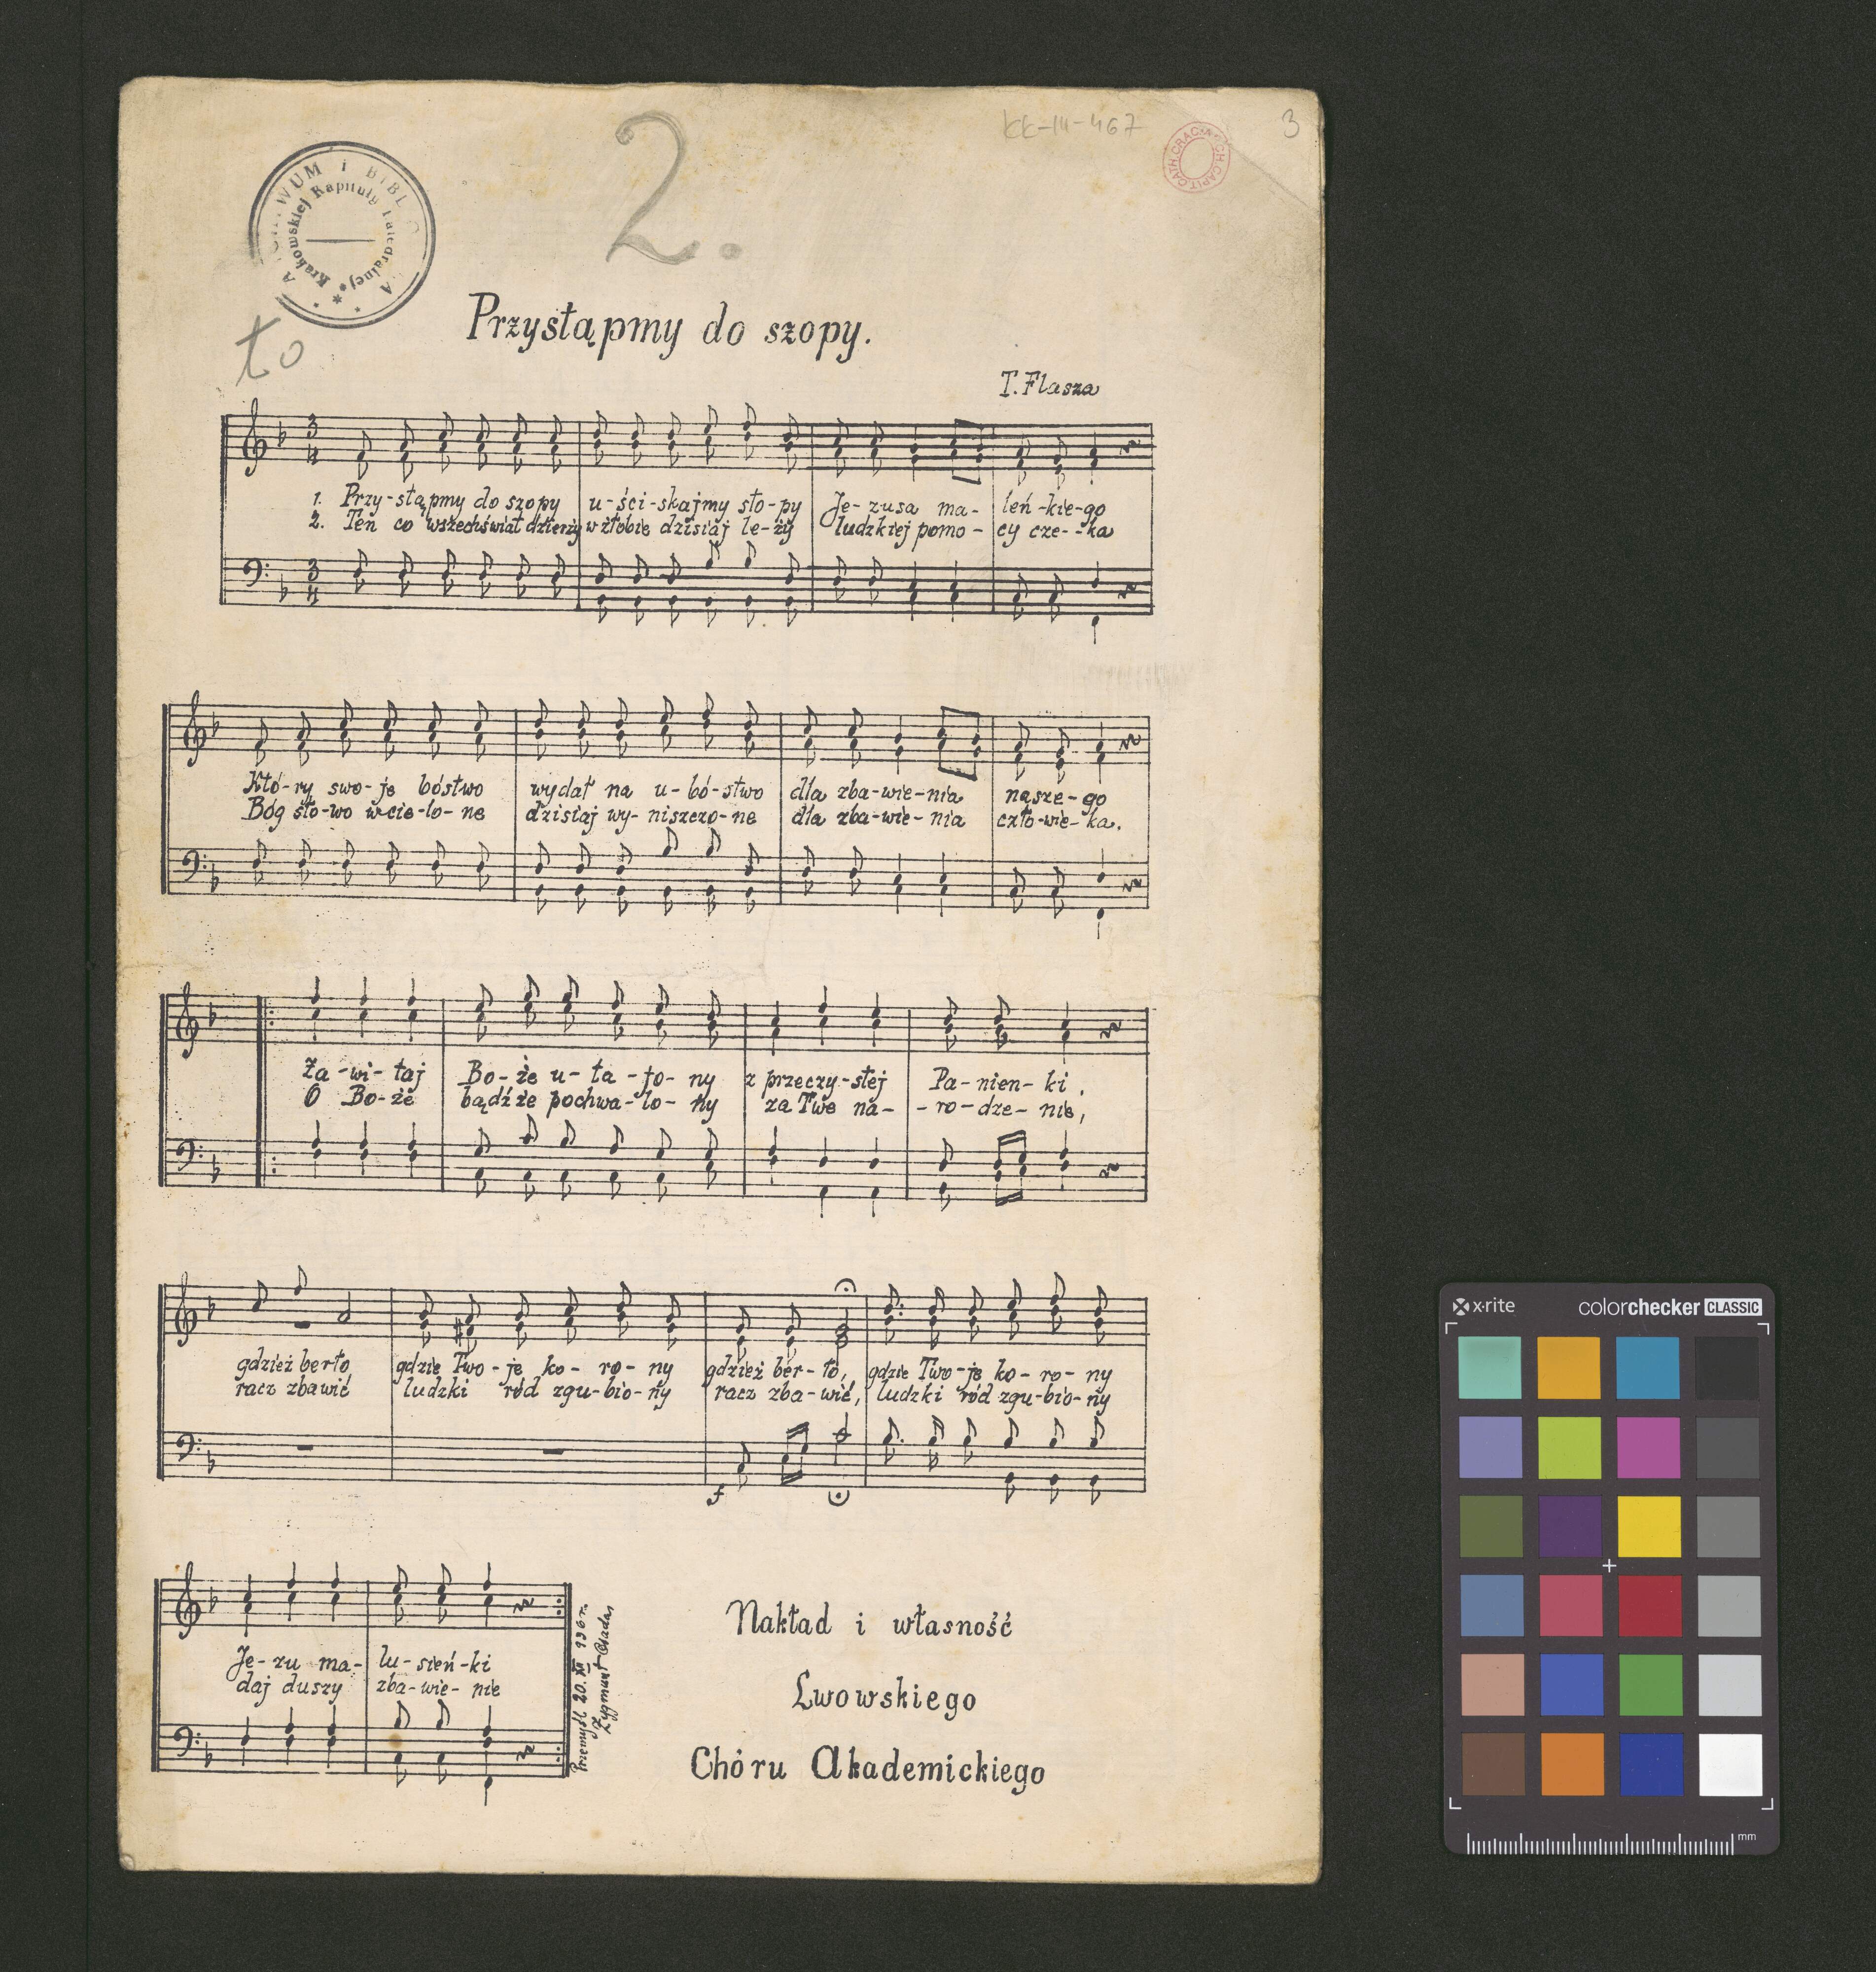 KK-III-467
3
2.
ARCHIWUM i BIBLIOTEKA
Krakowskiej Kapituły Katedralnej
ARCH. CAPIT. CATH. CRAC.
to
Przystąpmy do szopy.
T. Flasza
3 4
1. Przy-stąpmy do szopy u-ści-skajmy sto-py Je-zusa ma-leń-kie-go
2. Ten co wszechświat dzierży w żłobie dzisiaj le-ży ludzkiej pomo-cy cze--ka
3 4
Któ-ry swo-je bóstwo wydał na u-bó-stwo dla zba-wie-nia nasze-go
Bóg sło-wo wcie-lo-ne dzisiaj wy-niszczo-ne dla zba-wie-nia czło-wie-ka.
Za-wi-taj Bo-że u-ta-jo-ny z przeczy-stej Pa-nien-ki,
O Bo-że bądźże pochwa-lo-ny za Twe na--ro-dze-nie,
gdzież berło gdzie Two-je ko-ro-ny gdzież ber-ło, gdzie Two-je ko-ro-ny
racz zbawić ludzki ród zgu-bio-ny racz zba-wić, ludzki ród zgu-bio-ny
f
Je-zu ma-lu-sień-ki
daj duszy zba-wie-nie
Przemyśl 20. XI 936 r.
Zygmunt
Nakład i własność
Lwowskiego
Chóru Akademickiego
x·rite colorchecker CLASSIC
mm